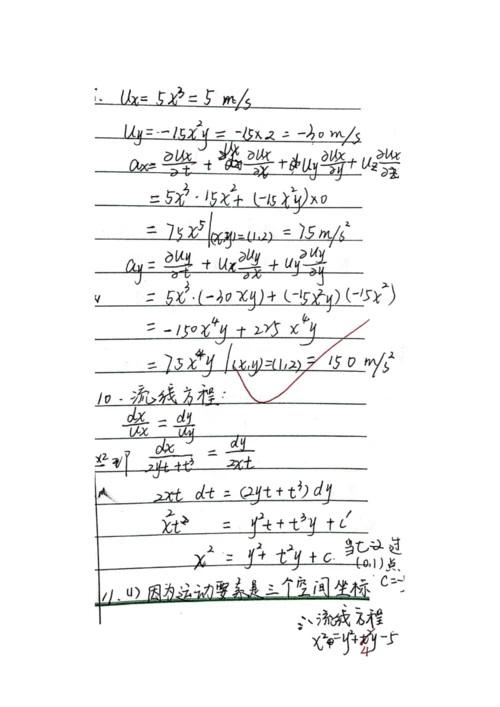 Ux = 5x³ = 5 m/s
Uy = -15x²y = -15×2 = -30 m/s
ax = ∂Ux/∂t + Ux ∂Ux/∂x + Uy ∂Ux/∂y + Uz ∂Ux/∂z
= 5x³·15x² + (-15x²y)×0
= 75x⁵ |(x,y)=(1,2) = 75 m/s²
ay = ∂Uy/∂t + Ux ∂Uy/∂x + Uy ∂Uy/∂y
= 5x³·(-30xy) + (-15x²y)(-15x²)
= -150x⁴y + 225x⁴y
= 75x⁴y |(x,y)=(1,2) = 150 m/s²
10. 流线方程:
dx/Ux = dy/Uy
即 dx/(2yt+t³) = dy/(2xt)
2xt dt = (2yt+t³) dy
x²t = y²t + t³y + c'
x² = y² + t²y + c. 当t=2 过
(0,1)点
c=-
11. (1) 因为运动要素是三个空间坐标
∴流线方程
x² = y² + 4y - 5